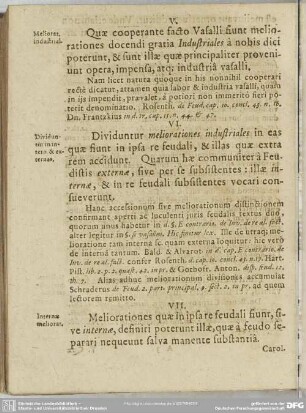 V.
Meliorat. industrial.
Quæ cooperante facto Vasalli fiunt meliorationes
docendi gratia Industriales à nobis dici
poterunt, & sunt illæ quæ principaliter proveniunt
opera, impensa, atq; industriâ vasalli.
Nam licet natura quoque in his nonnihil cooperari
rectè dicatur, attamen quia labor & industria vasalli, quasi
in iis impendit, prævalet, à potiori non immeritò fieri poterit
denominatio. Rosenth. de Feud. cap. 10. concl. 45. n. 1.
Dn. Frantzkius
VI.
Dividuntur in internas & externas.
Dividuntur meliorationes industriales in eas
quæ fiunt in ipsa re feudali, & illas quæ extra
rem accidunt. Quarum hæ communiter à Feudistis
externæ, sive per se subsistentes: illæ internæ,
& in re feudali subsistentes vocari consueverunt.
Hanc accessionum sive meliorationum distinctionem
confirmant aperti ac luculenti juris feudalis textus duo,
quorum unus habetur in d. §. E contrario. de Inv. de re al. fact.
alter legitur in §. si vasallus. Hic finitur lex. Ille de utraq; melioratione
tam interna sc. quam externa loquitur: hic verò
de interna tantum. Bald. & Alvarot. in d. cap. E contrario. de
Inv. de re al. fact. confer Rosenth. d. cap. 10. concl. 45. n. 13. Hart.
Pist. lib. 2. p. 2. quæst. 42. in pr. & Gothofr. Anton. disp. feud. 12.
th. 7. Alias adhuc meliorationum divisiones accumulat
Schraderus de Feud. 2. part. principal. 9. sect. 2. in pr. ad quem
lectorem remitto.
VII.
Internæ meliorat.
Meliorationes quæ in ipsa re feudali fiunt, sive
internæ, definiri poterunt illæ, quæ à feudo separari
nequeunt salva manente substantiâ.
Carol.